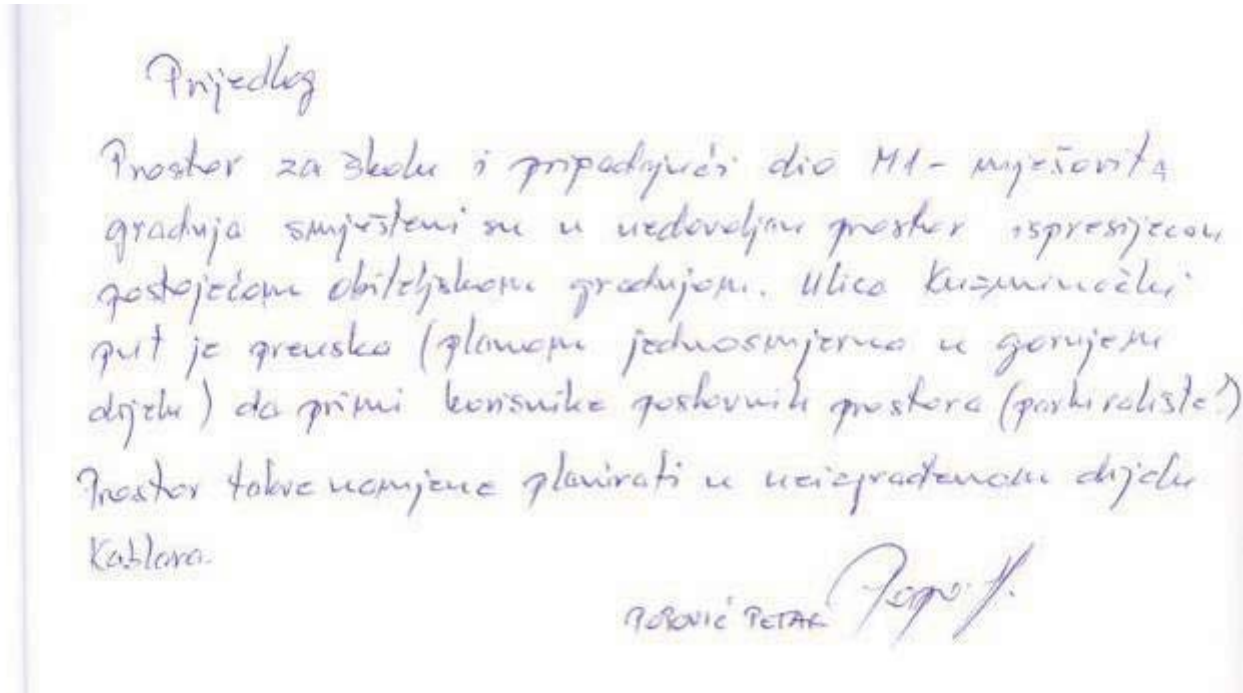 Prijedlog
Prostor za školu i pripadajući dio M1 - mješovita
gradnja smješteni su u nedovoljan prostor ispresijecan
postojećom obiteljskom gradnjom. Ulica Kuzminečki
put je preuska (planom jednosmjerna u gornjem
dijelu) da primi korisnike poslovnih prostora (parkiralište!)
Prostor takve namjene planirati u neizgrađenom dijelu
Kablara.
POPOVIĆ PETAR